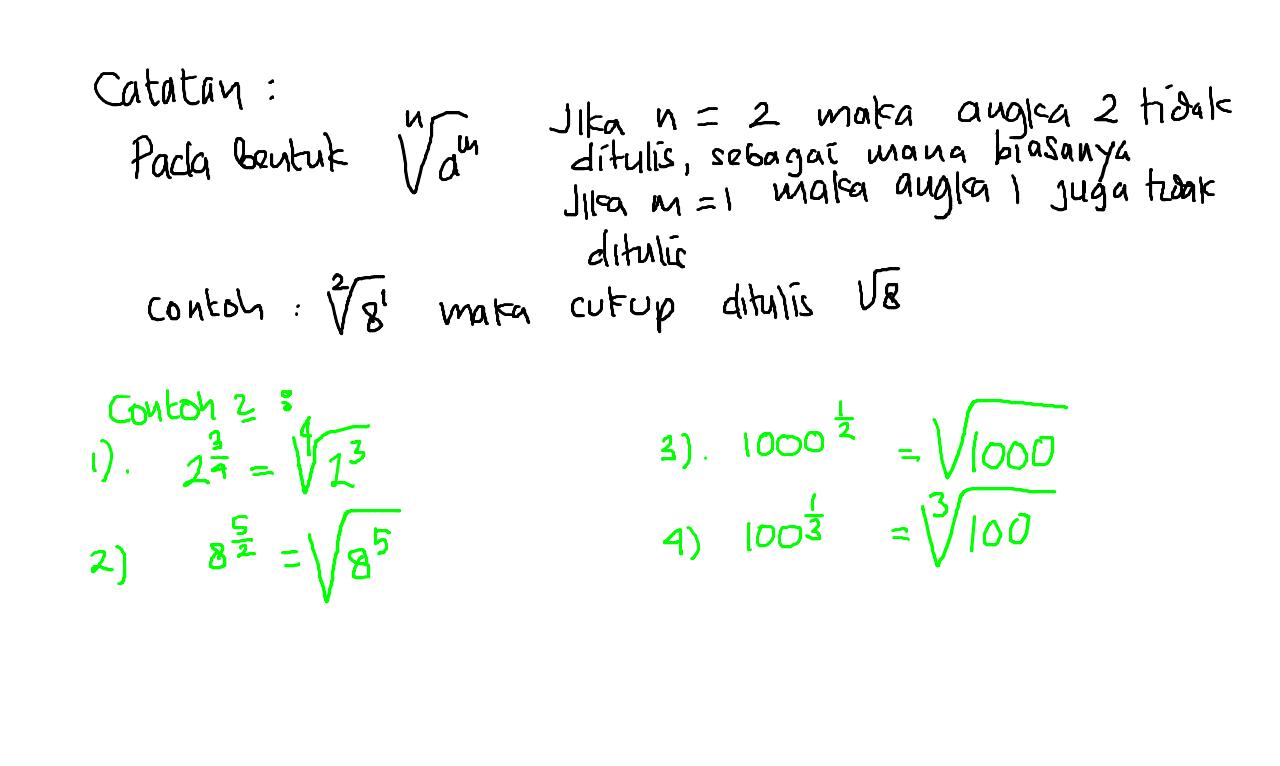 Catatan :
Pada bentuk ⁿ√aᵐ
Jika n = 2 maka angka 2 tidak
ditulis, sebagai mana biasanya
Jika m = 1 maka angka 1 juga tidak
ditulis
contoh : ²√8¹ maka cukup ditulis √8
Contoh 2 :
1). 2^(3/4) = ⁴√2³
2) 8^(5/2) = √8⁵
3). 1000^(1/2) = √1000
4) 100^(1/3) = ³√100